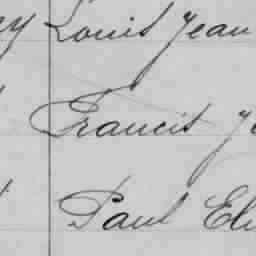 ey Louis Jean
Francis Je
Paul Eli